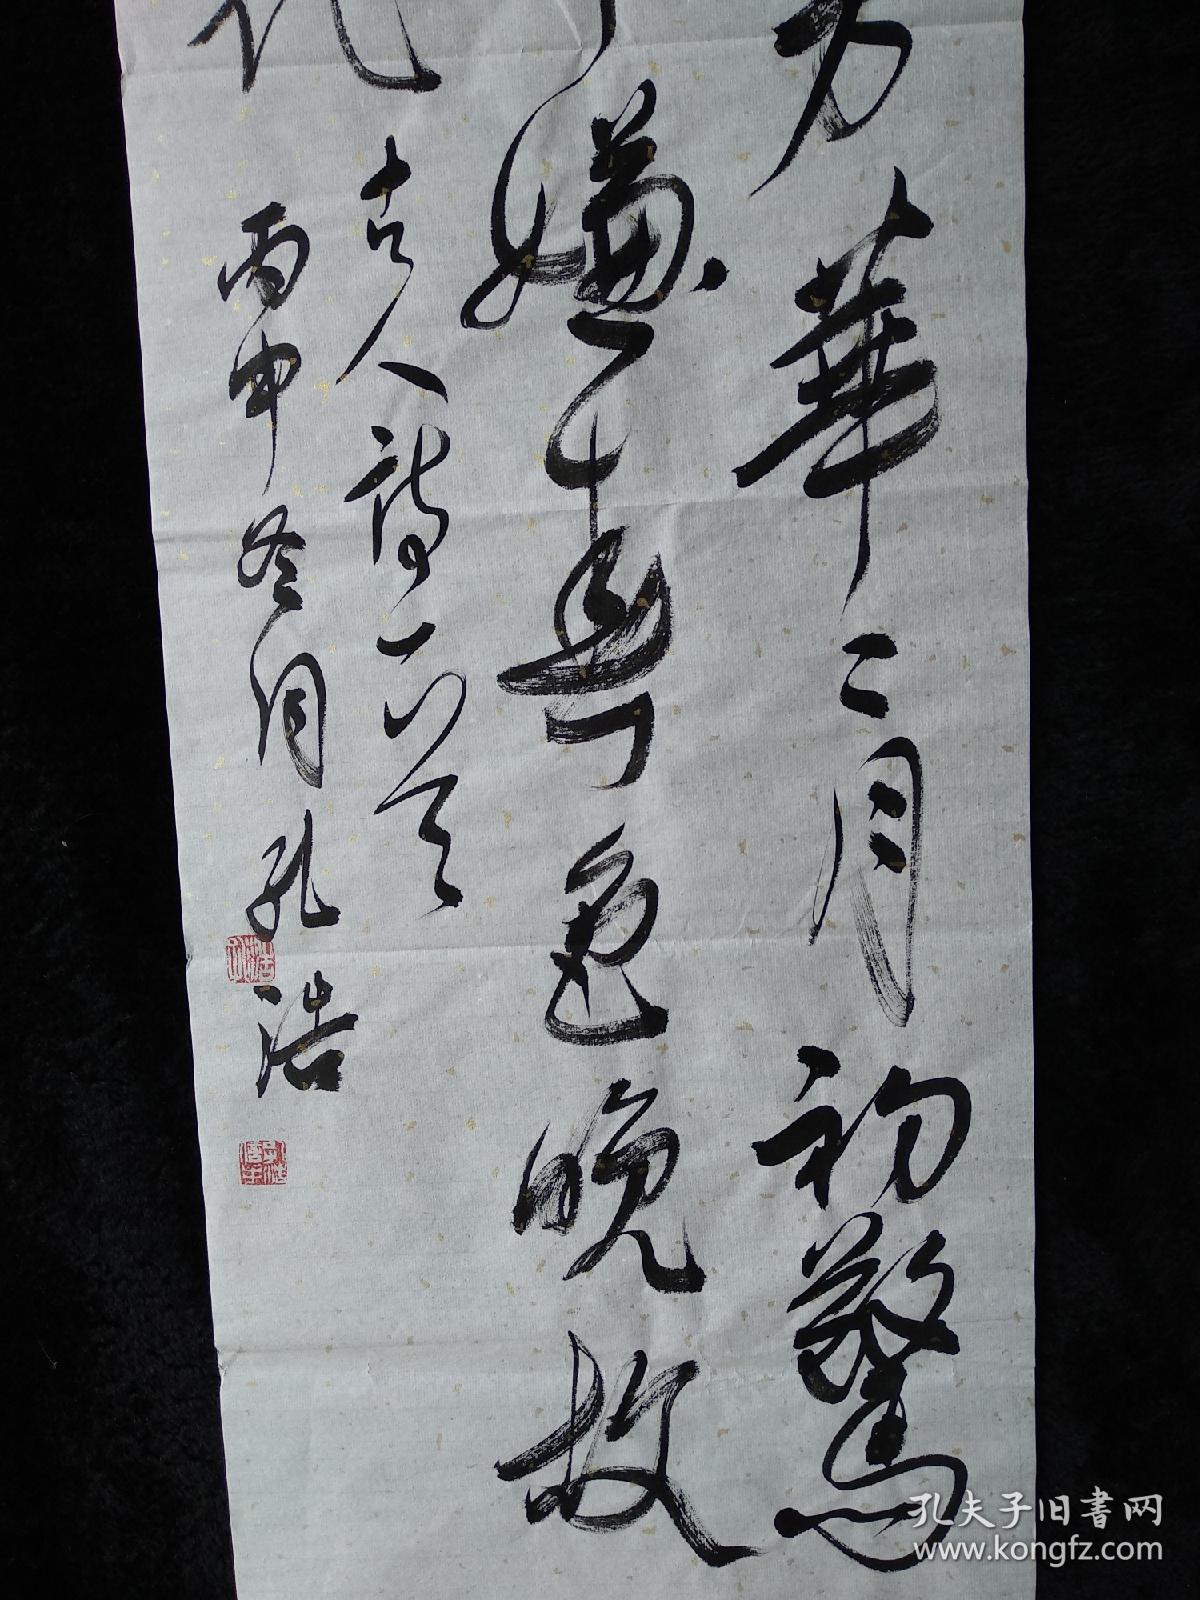 華二月初驚
嫌春色晚故
古人詩一首
丙申冬月孔浩
孔夫子旧書网
www.kongfz.com